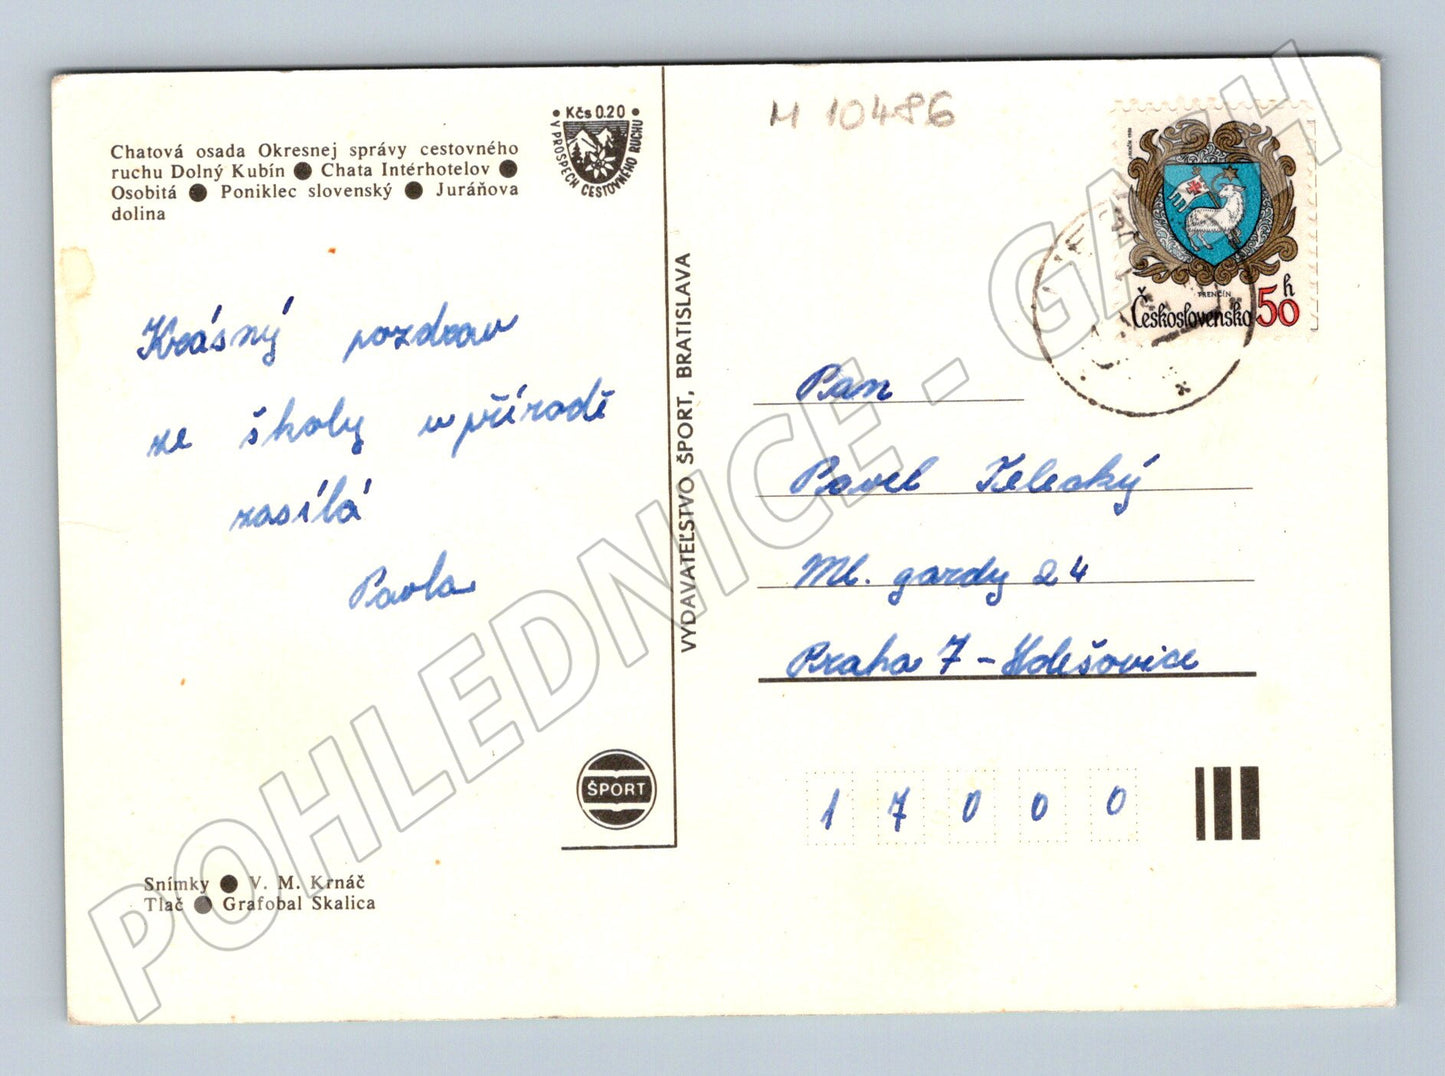 Chatová osada Okresnej správy cestovného
ruchu Dolný Kubín ● Chata Interhotelov ●
Osobitá ● Poniklec slovenský ● Juráňova
dolina
• Kčs 0.20 •
V PROSPECH CESTOVNÉHO RUCHU
M 10486
TRENČÍN
Československo 50 h
Krásný pozdrav
ze školy v přírodě
zasílá
Pavla
VYDAVATEĽSTVO ŠPORT, BRATISLAVA
Pan
Pavel Zelecký
Ml. gardy 24
Praha 7 - Holešovice
17000
ŠPORT
Snímky ● V. M. Krnáč
Tlač ● Grafobal Skalica
POHLEDNICE - GASH